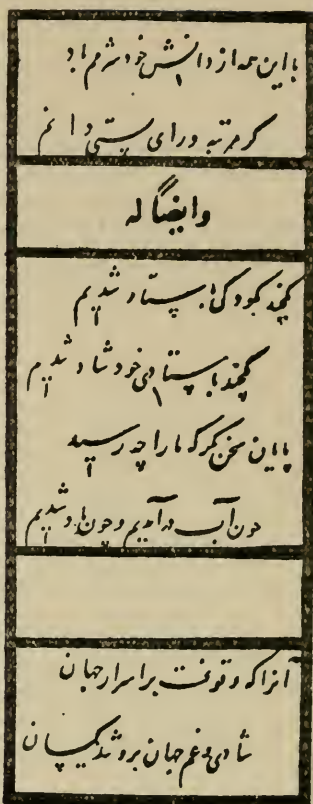 با این همه از دانش خود شرمم باد
گر مرتبه ورای مستی دانم
وایضاً له
یکچند بکودکی باستاد شدیم
یکچند باستادی خود شاد شدیم
پایان سخن نگر که ما را چه رسید
چون آب در آمدیم و چون باد شدیم
آنرا که وقوفست بر اسرار جهان
شادی و غم جهان برو شد یکسان